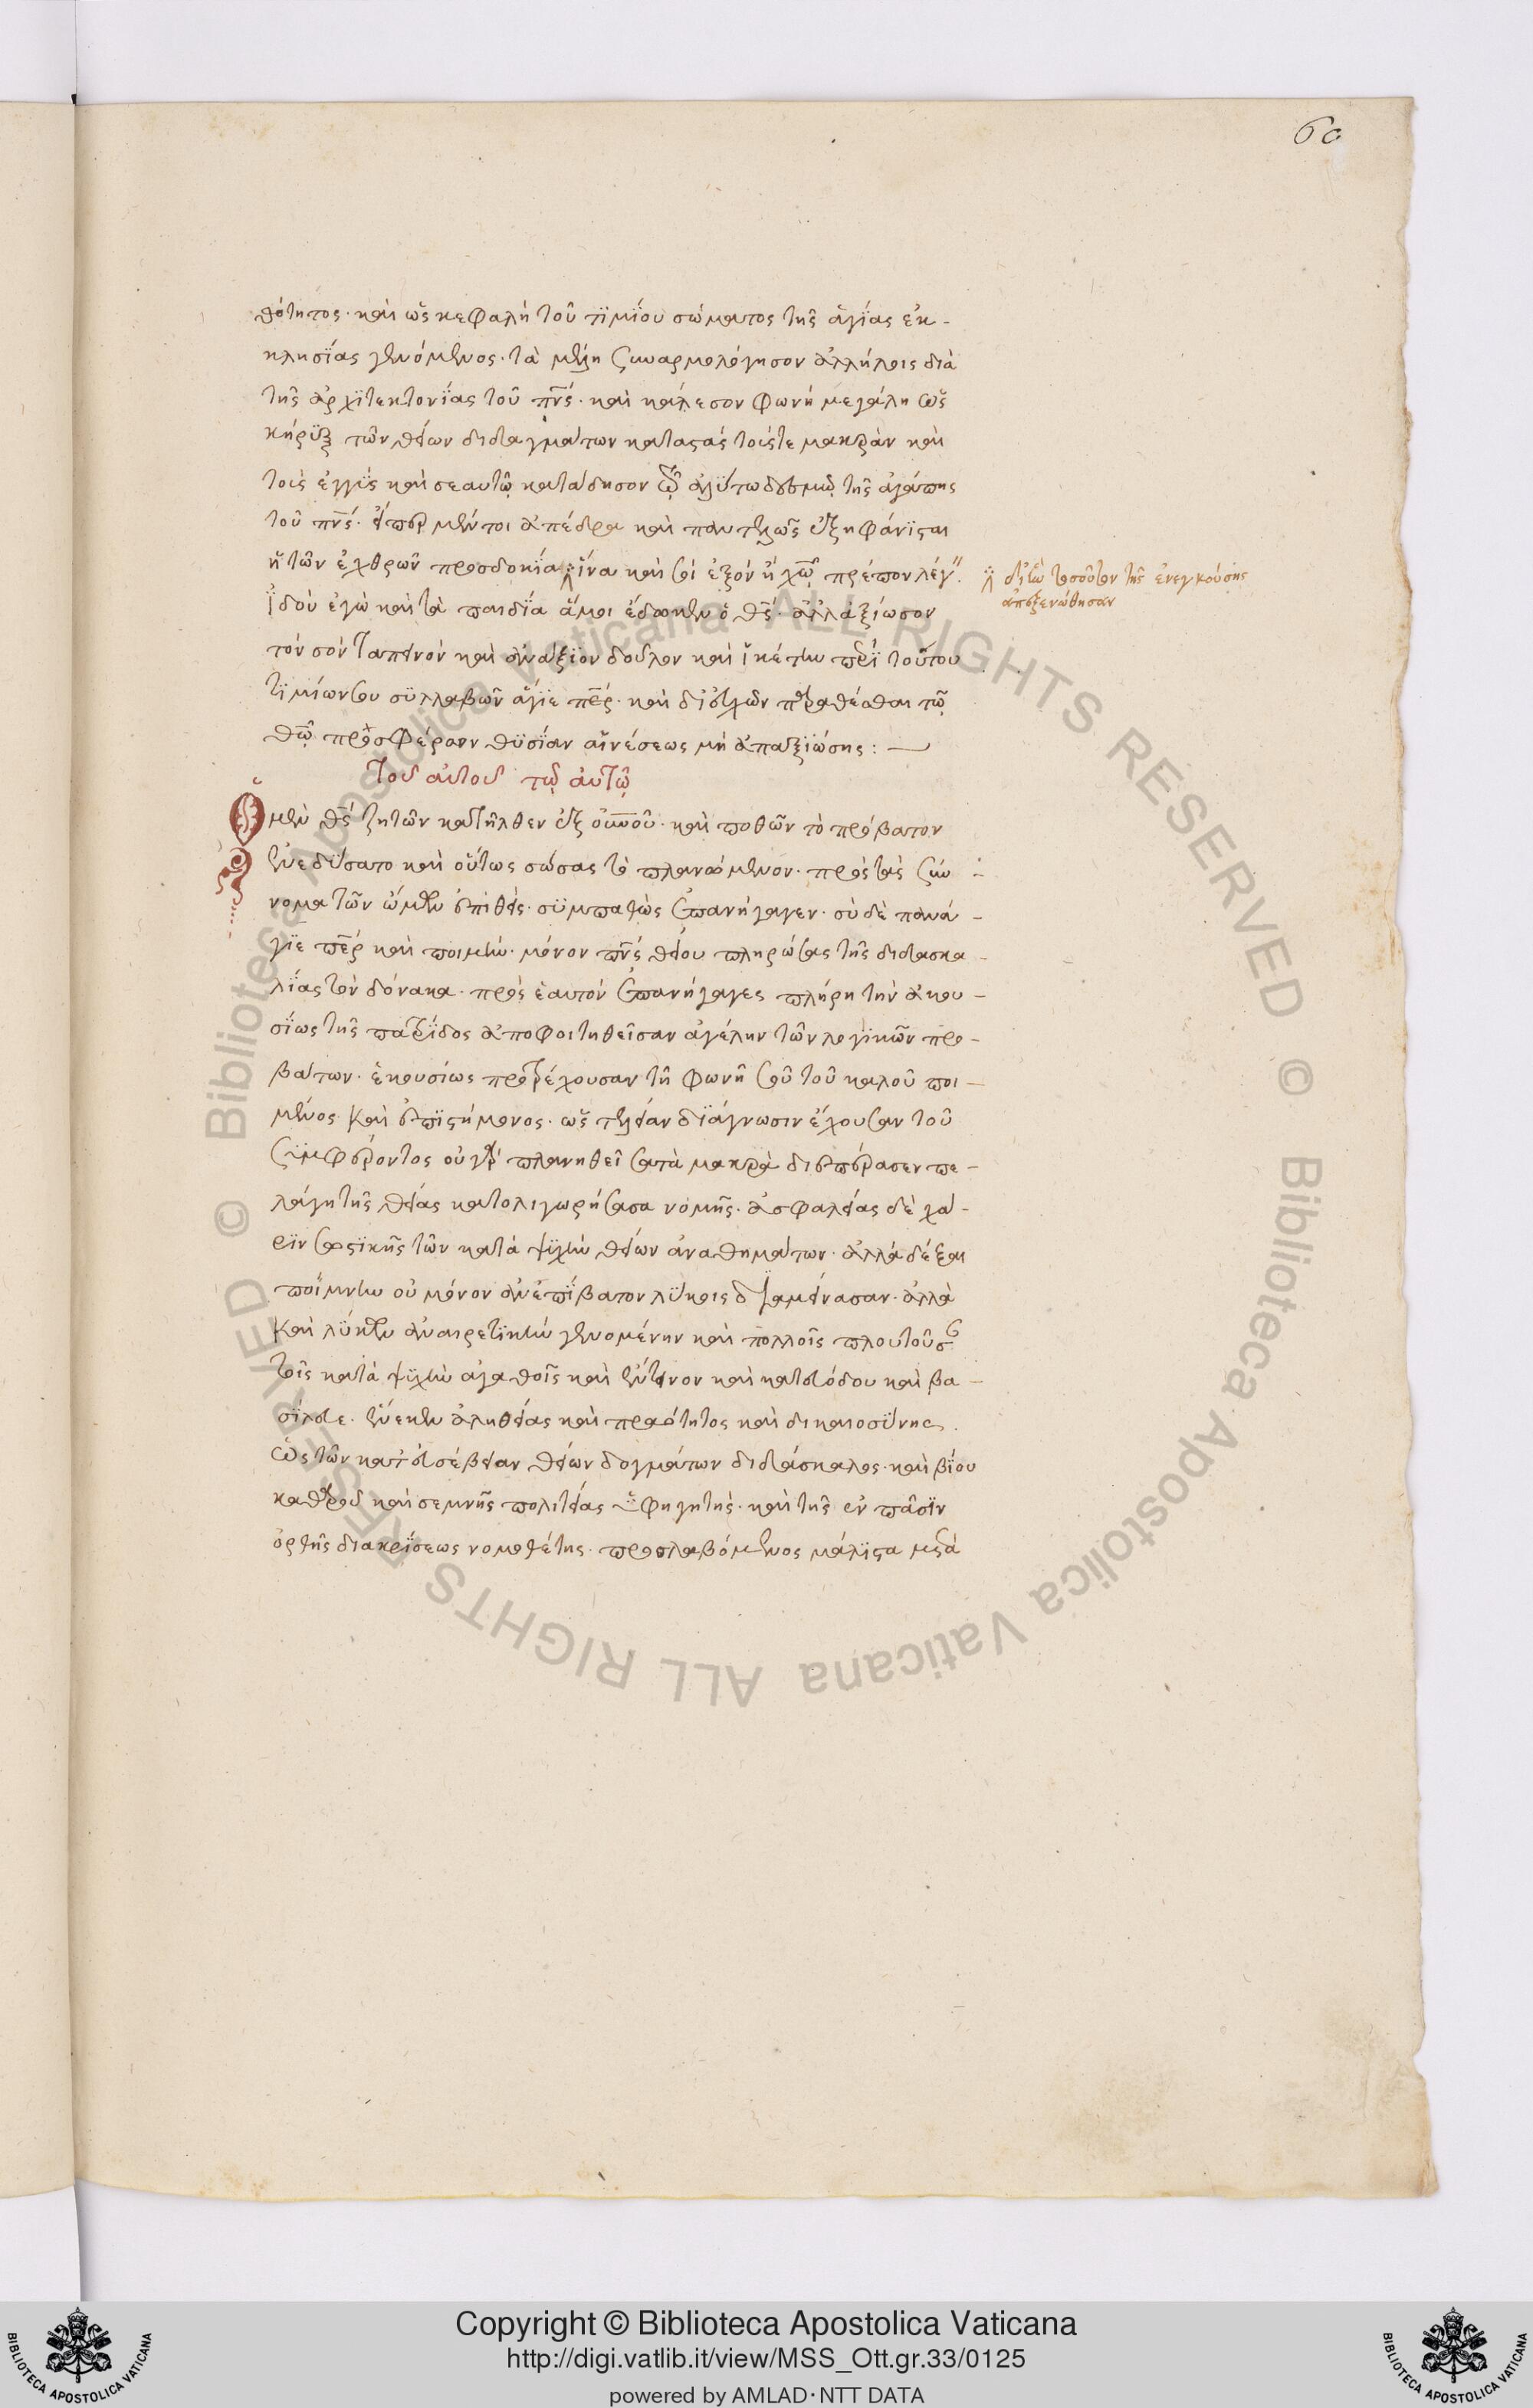 60
θότητος· καὶ ὡς κεφαλὴ τοῦ τιμίου σώματος τῆς ἁγίας ἐκ-
κλησίας γενόμενος· τὰ μέλη συναρμολόγησον ἀλλήλοις διὰ
τῆς ἀρχιτεκτονίας τοῦ πν̅ς· καὶ κάλεσον φωνῇ μεγάλῃ ὡς
κήρυξ τῶν θείων διδαγμάτων καταστὰς τοῖς τε μακρὰν καὶ
τοῖς ἐγγὺς καὶ σεαυτῷ κατάδησον τῷ ἀλύτῳ δεσμῷ τῆς ἀγάπης
τοῦ πν̅ς· εἴπερ μέντοι ἀπέδρα καὶ παντελῶς ἐξηφάνισται
ἡ τῶν ἐχθρῶν προσδοκία ἵνα καὶ σοὶ ἐξὸν ᾖ χῶ πρέπον λέγ
δι' ἣν τοσοῦτον τῆς ἐνεγκούσης
ἀπεξενώθησαν
ἰδοὺ ἐγὼ καὶ τὰ παιδία ἅ μοι ἔδωκεν ὁ θς̅· ἀλλ' ἀξίωσον
τὸν σὸν ταπεινὸν καὶ ἀνάξιον δοῦλον καὶ ἱκέτην περὶ τούτου
τιμίων σου συλλαβῶν ἅγιε περ̅· καὶ δι' εὐχῶν παραθέσθαι τῷ
θῶ̅ προσφέρων θυσίαν αἰνέσεως μὴ ἀπαξιώσης: —
τοῦ αὐτοῦ τῷ αὐτῷ
Ὁ μὲν θς̅ ζητῶν κατῆλθεν ἐξ οὐνοῦ̅· καὶ ποθῶν τὸ πρόβατον
ἐνεδύσατο καὶ οὕτως σώσας τὸ πλανώμενον· πρὸς τὰς συν
νομὰ τῶν ὤμων ἐπιθεὶς· συμπαθῶς ἐπανήγαγεν· σὺ δὲ πανά-
γιε περ̅ καὶ ποιμὴν· μόνον πν̅ς θείου πληρώσας τῆς διδασκα-
λίας τὸν δόνακα· πρὸς ἑαυτὸν ἐπανήγαγες πλήρη τὴν ἀκου-
σίως τῆς πατρίδος ἀποφοιτηθεῖσαν ἀγέλην τῶν λογικῶν προ-
βάτων· ἑκουσίως προστρέχουσαν τῇ φωνῇ σοῦ τοῦ καλοῦ ποι-
μένος καὶ ἐπιστήμονος· ὡς τελείαν διάγνωσιν ἔχουσαν τοῦ
συμφέροντος οὐ γὰρ πλανηθεῖσα τὰ μακρὰ διεπέρασεν πε-
λάγη τῆς θείας κατολιγωρήσασα νομῆς· ἀσφαλείας δὲ χά-
ριν σωστικῆς τῶν κατὰ ψυχὴν θείων ἀναθημάτων· ἀλλὰ δέξαι
ποίμνην οὐ μόνον ἀνεπίβατον λύκοις διαμείνασαν· ἀλλὰ
καὶ λύκων ἀναιρετικὴν γενομένην καὶ πολλοῖς πλουτοῦσ
τοῖς κατὰ ψυχὴν ἀγαθοῖς καὶ ἔντεινον καὶ κατευόδου καὶ βα-
σίλευε· ἕνεκεν ἀληθείας καὶ πραότητος καὶ δικαιοσύνης.
ὡς τῶν κατ' εὐσέβειαν θείων δογμάτων διδάσκαλος· καὶ βίου
καθαροῦ καὶ σεμνῆς πολιτείας ὑφηγητὴς· καὶ τῆς ἐν πᾶσιν
ὀρθῆς διακρίσεως νομοθέτης· προσλαβόμενος μάλιστα μετὰ
Copyright © Biblioteca Apostolica Vaticana
http://digi.vatlib.it/view/MSS_Ott.gr.33/0125
powered by AMLAD·NTT DATA
BIBLIOTECA APOSTOLICA VATICANA
BIBLIOTECA APOSTOLICA VATICANA
© Biblioteca Apostolica Vaticana ALL RIGHTS RESERVED
© Biblioteca Apostolica Vaticana ALL RIGHTS RESERVED